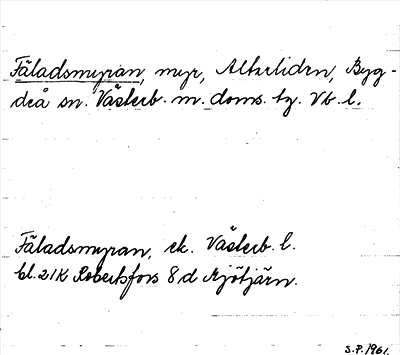 Fäladsmyran, myr, Altarliden, Byg-
deå sn. Västerb. m. doms. tg. Vb. l.
Fäladsmyran, ek. Västerb. l.
bl. 21K Robertsfors 8d Mjötjärn.
S.P. 1961.